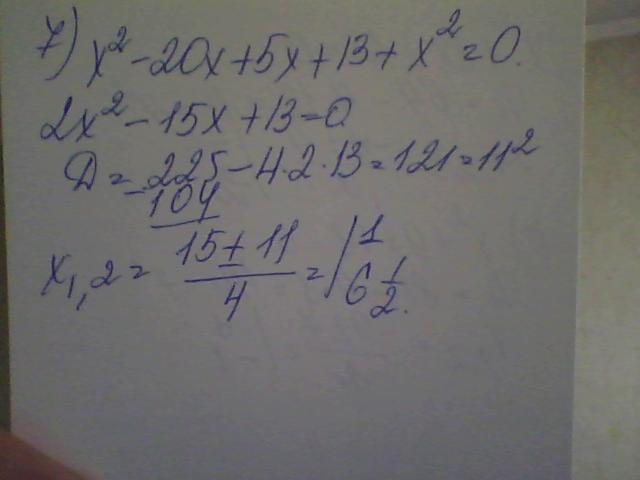 7) x² - 20x + 5x + 13 + x² = 0.
2x² - 15x + 13 = 0
D = 225 - 4·2·13 = 121 = 11²
- 104
x₁,₂ = (15 ± 11)/4 = | 1
6 1/2.